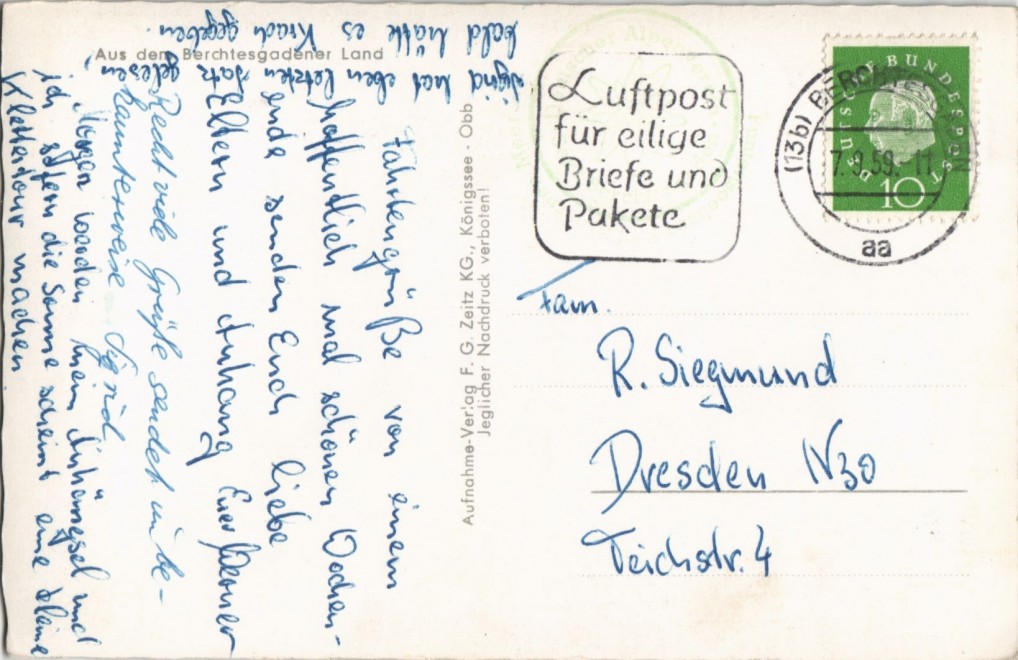 Aus dem Berchtesgadener Land
Fahrtengrüße von einem
hoffentlich mal schönen Wochen-
ende senden Euch liebe
Eltern und Anhang Euer Werner
Recht viele Grüße sendet in be-
kannterweise Sigrid.
Morgen werden mein Anhängsel und
ich, sofern die Sonne scheint eine kleine
Klettertour machen.
Sigrid hat eben letzten Satz gelesen,
bald hätte es Krach gegeben.
Aufnahme-Verlag F. G. Zeitz KG., Königssee - Obb
Jeglicher Nachdruck verboten!
Luftpost
für eilige
Briefe und
Pakete
(13b) BERCHTESGADEN
7.9.59.-11
aa
DEUTSCHE BUNDESPOST
10
Fam.
R. Siegmund
Dresden N30
Teichstr. 4